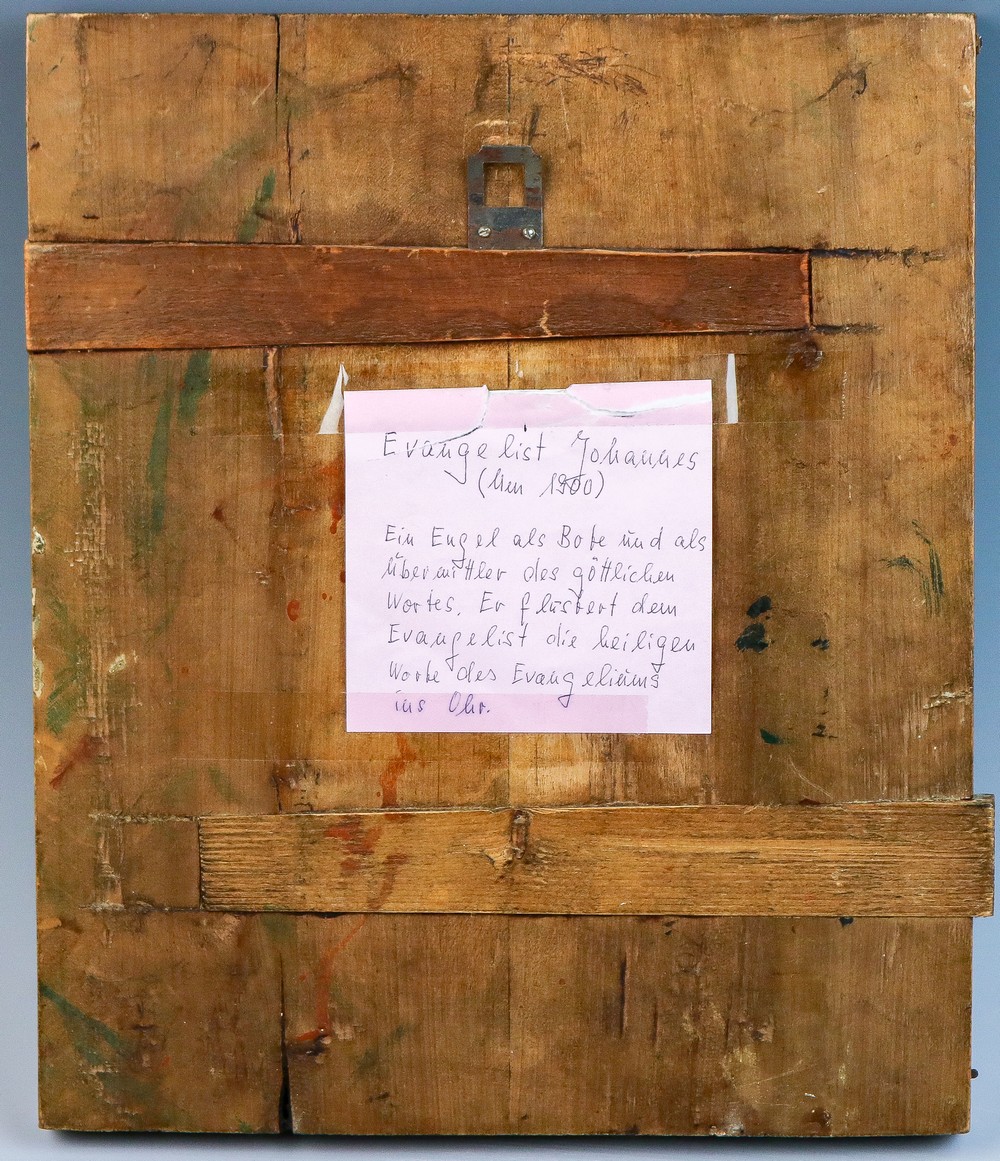 Evangelist Johannes
(Um 1900)
Ein Engel als Bote und als
Übermittler des göttlichen
Wortes. Er flüstert dem
Evangelist die heiligen
Worte des Evangeliums
ins Ohr.